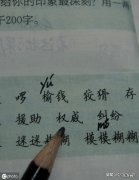 给你的印象最深刻?用一
于200字。
yú
榆钱 狡猾 存
援助 权威 纠纷
迷迷糊糊 模模糊糊